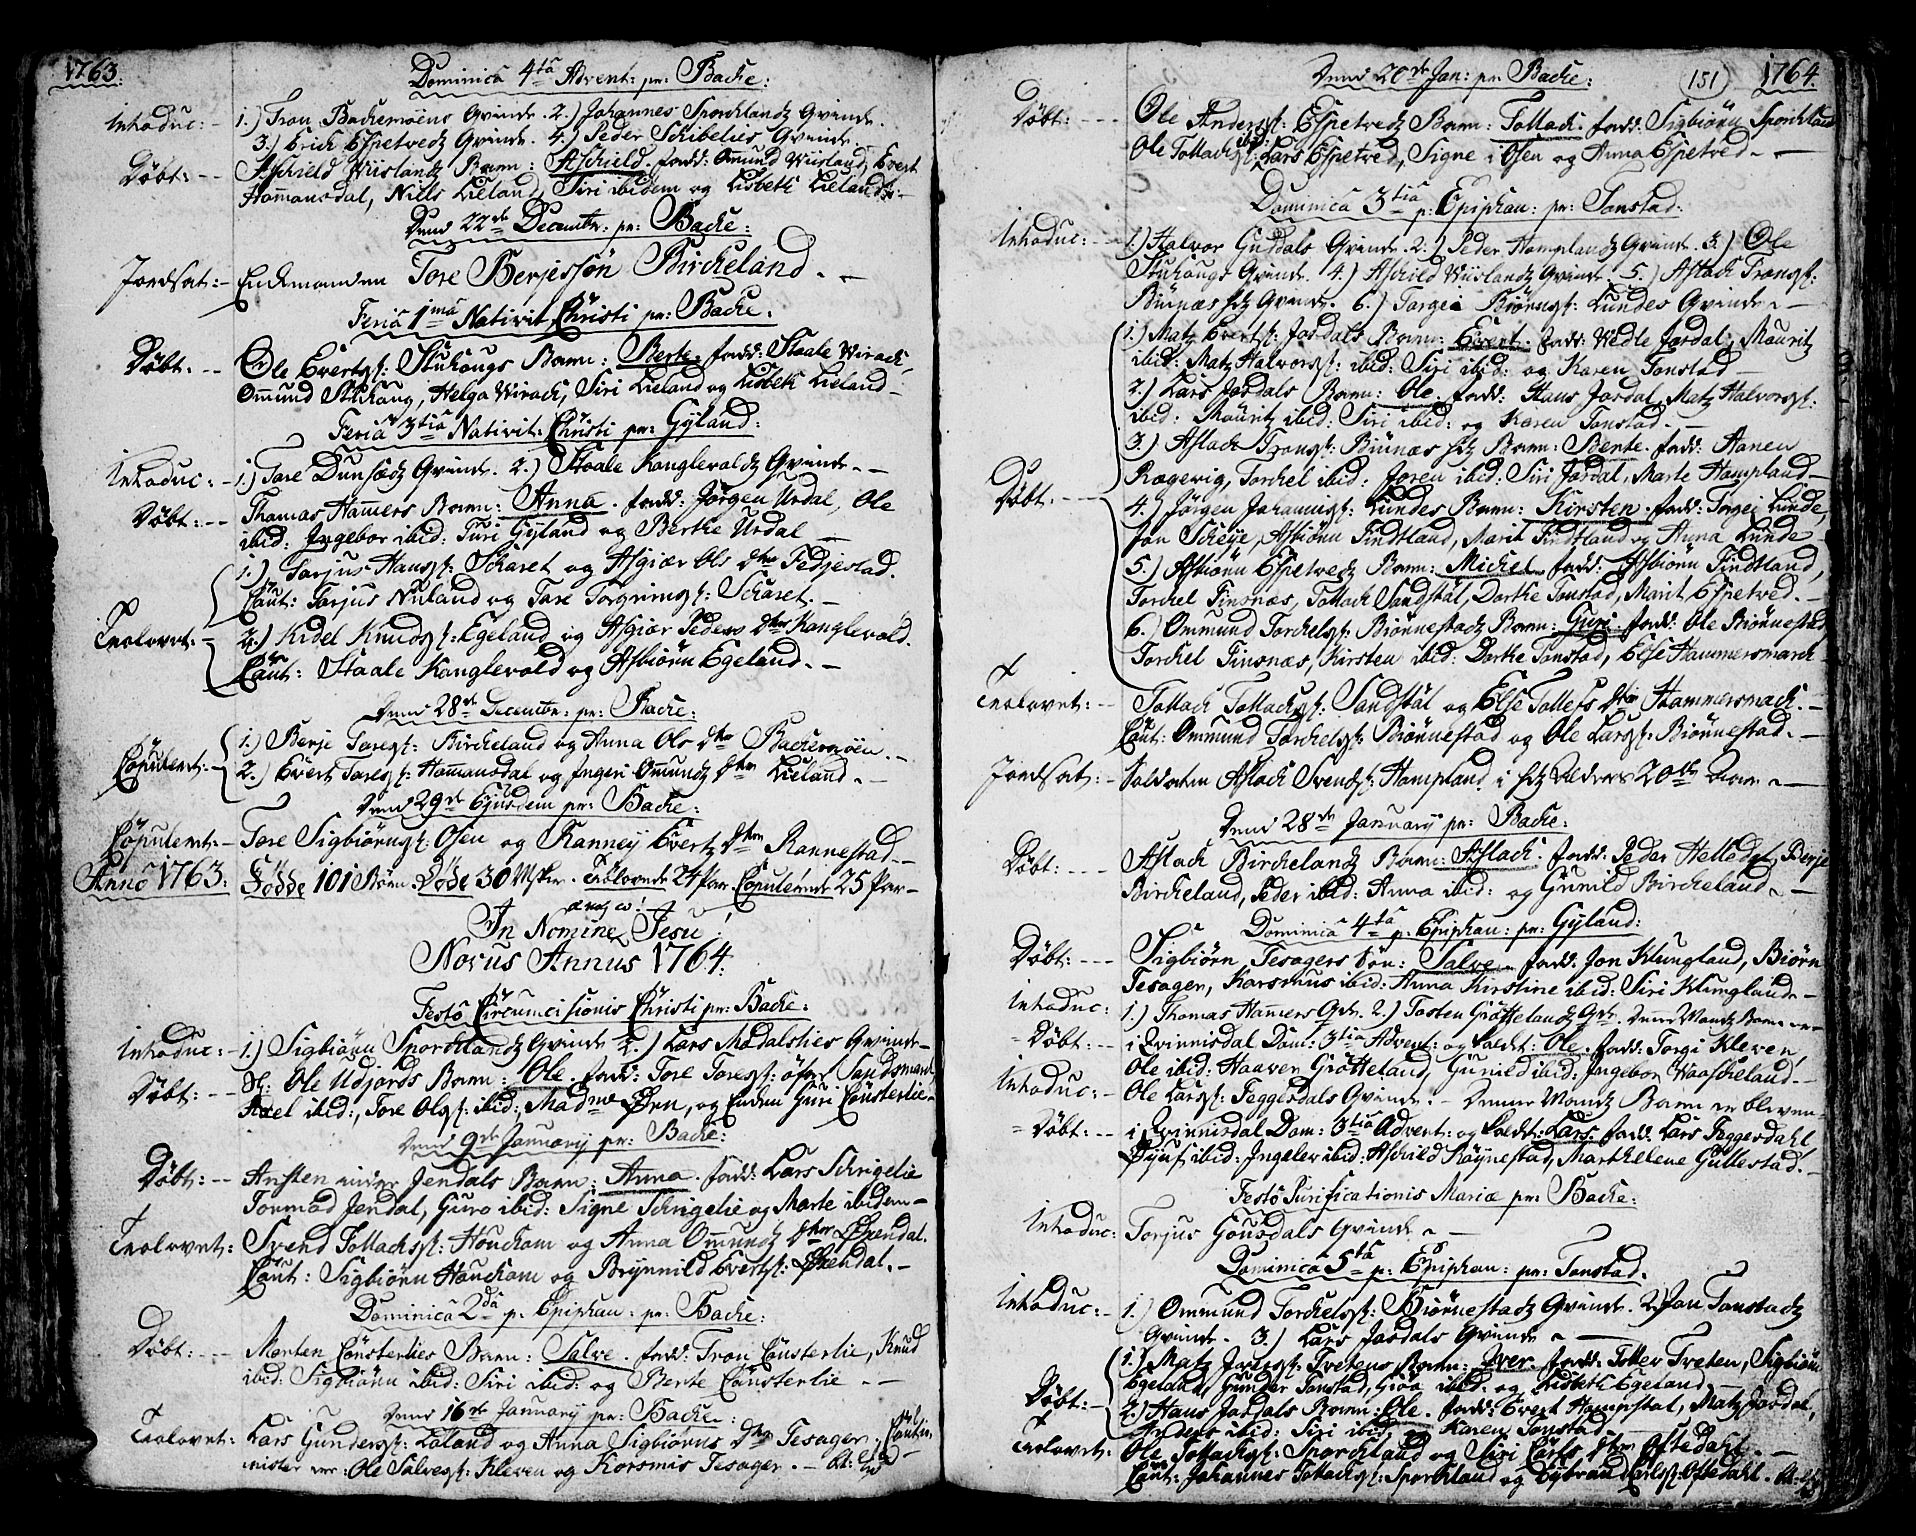 1763.
Dominica 4ta Advent: pr: Backe:
Introduc: 1.) Tron Backemoens Qvinde. 2.) Johannes Sporklandz Qvinde.
3.) Erich Espetvedz Qvinde. 4.) Peder Schibelies Qvinde.
Døbt: Aschield Wiislandz Barn: Aschield. fadd: Omund Wiisland, Evert
Homansdal, Nills Lieland, Siri ibidem og Lisbeth Lieland.
Dend 22de Decembr: pr: Backe:
Jordsat: Enckemanden Tore Berjessøn Birckeland.
Feria 1ma Nativit: Christi pr: Backe.
Døbt: Ole Evertss: Stuhougs Barn: Berte. fadd: Staale Virack,
Ommund Stuhoug, Helga Virack, Siri Lieland og Lisbeth Lieland
Feria 3tia Nativit: Christi pr: Gyland:
Introduc: 1.) Tore Dunsædz Qvinde. 2.) Staale Kanglevoldz Qvinde.
Døbt: Thomas Hamers Barn: Anna. fadd: Jørgen Urdal, Ole
ibid: Ingebor ibid: Turi Gyland og Berthe Urdal
1.) Tarjus Hanss: Scharet og Asgiær Ols dtter Fedjestad.
Caut: Tarjus Nuland og Tore Torgrimss: Scharet.
Trolovet: 2.) Kidel Knudss: Egeland og Asgiær Peders dtter Kanglevold.
Caut: Staale Kanglevold og Asbiørn Egeland.
Dend 28de Decembr: pr: Backe:
1.) Berje Toress: Birckeland og Anna Ols dtter Backemoen.
Copuleret: 2.) Evert Toress: Homansdal og Ingeri Omundz dtter Lieland.
Dend 29de Ejusdem pr: Backe:
Copuleret: Tore Sigbiørnss: Osen og Ranney Evertz dtter Rannestad.
Anno 1763: Fødde 101 Børn. Døde 30 Msker. Trolovede 24 Par. Copulerede 25 Par
In Nomine Jesu!
Novus Annus 1764.
Festo Circumcisionis Christi pr: Backe:
Introduc: 1.) Sigbiørn Sporcklandz Qvinde 2.) Lars Modalslies Qvinde
Døbt: Ole Udjords Barn: Ole. fadd: Tore Toress: Sandsmark,
Axel ibid:, Tore Olss: ibid:, Madme Øen, og Enken Guri Consterlie
Dend 9de January pr: Backe:
Døbt: Ansten Jendals Barn: Anna. fadd: Lars Schregelie
Tormod Jendal, Guro ibid: Signe Schregelie og Marte ibidem
Trolovet: Svend Tollachss: Houckom og Anna Omundz dtter Øxendal.
Caut: Sigbiørn Houckom og Brynnild Evertss: Øxendal.
Dominica 2da p. Epiphan: pr: Backe:
Døbt: Morten Consterlies Barn: Salve. fadd: Tron Consterlie, Knud
ibid: Sigbiørn ibid: Siri ibid: og Berte Consterlie
Dend 16de January pr: Backe:
Trolovet: Lars Gunderss: Loland og Anna Sigbiørns dtter Tesager.
Ole Salvess: Kleven og Korsmis Tesager.
151
1764
Dend 20de Jan: pr: Backe:
Døbt: Ole Anderss: Espetvedz Barn: Tollack. fadd: Sigbiørn Sporckland
Ole Tollachss: Lars Espetved, Signe i Osen og Anna Espetved.
Dominica 3tia p: Epiphan: pr: Tonstad:
Introduc: 1.) Halvor Guddals Qvinde. 2.) Peder Homplandz Qvinde. 3.) Ole
Stuhougs Qvinde. 4.) Aschild Wiislandz Qvinde. 5.) Aslack Tronss:
Qvinde. 6.) Torgei Biørnss: Lundes Qvinde
1.) Matz Evertss: Josdals Barn: Evert. fadd: Vedle Josdal, Mauritz
ibid: Matz Halvorss: ibid: Siri ibid: og Karen Tonstad
2.) Lars Josdals Barn: Ole. fadd: Hans Josdal, Matz Halvorss:
ibid: Mauritz ibid: Siri ibid: og Karen Tonstad.
3.) Aslack Tronss: Barn: Bente. fadd: Aanen
Rægevig, Torckel ibid: Joren ibid: Siri Josdal, Marte Hompland
Døbt: 4.) Jørgen Johannss: Lundes Barn: Kirsten. fadd: Torgei Lunde,
Jon Scheje, Asbiørn Findtland, Marit Findtland og Anna Lunde
5.) Asbiørn Espetvedz Barn: Michel. fadd: Asbiørn Findtland,
Torckel Finsnæs, Tollack Sandstøl, Dorthe Tonstad, Marit Espetved.
6.) Ommund Torckelss: Biønnestadz Barn: Guri. fadd: Ole Biønnestad
Torckel Finsnæs, Kirsten ibid: Dorthe Tonstad, Else Hammersmarck
Trolovet: Tollack Tollachss: Sandstøl og Else Tollefs dtter Hammersmarck.
Caut: Ommund Torckelss: Biønnestad og Ole Larss: Biønnestad.
Jordsat: Soldaten Aslack Svendss: Hompland i sitz Alders 20de Aar
Dend 28de January pr: Backe:
Døbt: Aslack Birckelandz Barn: Aslack. fadd: Peder Helledal, Berje
Birckeland, Peder ibid: Anna ibid: og Gunild Birckeland
Dominica 4ta p: Epiphan: pr: Gyland:
Døbt: Sigbiørn Tesagers Søn: Salve. fadd: Jon Klungland, Biørn
Tesager, Korsmus ibid: Anna Kirstine ibid: Siri Klungland
Introduc: 1.) Thomas Hamers Qvde. 2.) Tosten Grøttelandz Qvde. Denne Mandz Barn er
Døbt: i Qvinnisdal Dom: 3tia Advent: og kaldet: Ole. fadd: Torgi Kleven,
Ole ibid: Haaver Grøtteland, Gunild ibid: Ingebor Haascheland
Introduc: Ole Larss: Feggerdals Qvinde. Denne Mandz Barn er bleven
Døbt: i Qvinnisdal Dom: 3tia Advent: og kaldet: Lars. fadd: Lars Feggerdahl
ibid: Ingelev ibid: Aschild Røynestad, Marthelene Gullestad.
Festo Purificationis Mariæ pr: Backe:
Introduc: Torjus Gousdals Qvinde
Dominica 5ta p: Epiphan: pr: Tonstad.
Introduc: 1.) Ommund Torckelss: Biønnestadz Qvinde. 2. Jon Tonstadz
Qvinde. 3.) Lars Josdals Qvinde
1.) Matz Tvetens Barn: Iver. fadd: Tollev Tveten, Sigbiørn
Egeland, Gunder Tonstad, Gioa ibid: og Lisbeth Egeland
Døbt: 2.) Hans Josdals Barn: Ole. fadd: Evert Hompstøl, Matz Josdal,
Anders ibid: Siri ibid: og Karen Tonstad.
Trolovet: Ole Tollachss: Sporckland og Siri Carls dtter Oftedahl.
Caut: Johannes Tollachss: Sporckland og Eybrand Carlss: Oftedahl.